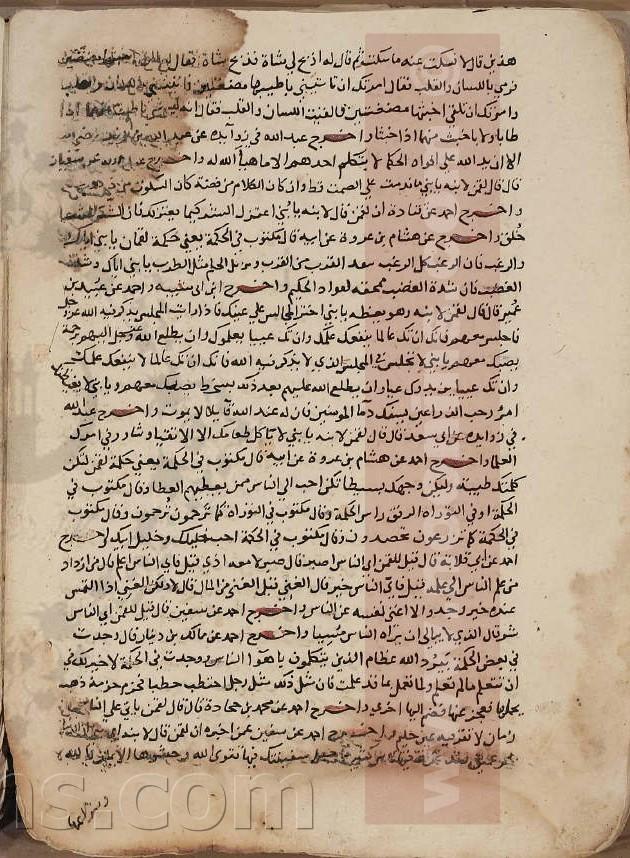 هذين قال لا فسكت عنه ما سكت ثم قال له اذبح لي شاة فذبح شاة فقال له
فرمى باللسان والقلب فقال امرتك ان تاتيني باطيبها مضغتين فاتيتني باللسان والقلب
وامرتك ان تلقي اخبثها مضغتين فالقيت اللسان والقلب فقال انه ليس شي باطيب منهما اذا
طابا ولا باخبث منهما اذا خبثا واخرج عبد الله في زوايده عن عبد الله بن زيد
الا ان يد الله على افواه الحكما لا يتكلم احدهم الا ما هيأ الله له واخرج
قال قال لقمن لابنه يا بني ما ندمت على الصمت قط وان كان الكلام من فضة كان السكوت من ذهب
واخرج احمد عن قتادة ان لقمن قال لابنه يا بني اعتزل الشر كيما يعتزلك فان الشر للشر
خلق واخرج عن هشام بن عروة عن ابيه قال مكتوب في الحكمة يعني حكمة لقمان يا بني اياك
والرغب فان الرغب كل الرغب يبعد القرب من القرب ويزيل الحلم مثل الطرب يا بني اياك وشدة
الغضب فان شدة الغضب ممحقه لفواد الحكيم واخرج ابن ابي شيبه واحمد عن عبيد بن
عمير قال قال لقمن لابنه وهو يعظه يا بني اختر المجالس على عينك فاذا رايت المجلس يذكر فيه الله عز وجل
فاجلس معهم فانك ان تك عالما ينفعك علمك وان تك غبيا يعلموك وان يطلع الله عز وجل اليهم برحمة
يصبك معهم يا بني لا تجلس في المجلس الذي لا يذكر فيه الله فانك ان تك عالما لا ينفعك علمك
وان تك غبيا يزيدوك غيا وان يطلع الله عليهم بعد ذلك بسخط يصبك معهم ويا بني لا يغبطنك
امرؤ رحب الذراعين يسفك دما المومنين فان له عند الله قاتلا لا يموت واخرج عبد الله
في زوايده عن ابي سعيد قال قال لقمن لابنه يا بني لا ياكل طعامك الا الاتقيا وشاور في امرك
العلما واخرج احمد عن هشام بن عروة عن ابيه قال مكتوب في الحكمة يعني حكمة لقمن لتكن
كلمتك طيبة وليكن وجهك بسيطا تكن احب الى الناس ممن يعطيهم العطا وقال مكتوب في
الحكمة او في التوراة الرفق راس الحكمة وقال مكتوب في التوراة كما ترحمون ترحمون وقال مكتوب
في الحكمة كما تزرعون تحصدون وقال مكتوب في الحكمة احب خليلك وخليل ابيك واخرج
احمد عن ابي قلابة قال قيل للقمن اي الناس اصبر قال صبر لا معه اذي قيل فاي الناس اعلم قال من ازداد
من علم الناس الى علمه قيل فاي الناس خير قال الغني قيل الغني من المال قال لا ولكن الغني اذا التمس
عنده خير وجد والا اغنى نفسه عن الناس واخرج احمد عن سفين قال قيل للقمن اي الناس
شر قال الذي لا يبالي ان يراه الناس مسييا واخرج احمد عن مالك بن دينار قال وجدت
في بعض الحكمة يبدد الله عظام الذين يتكلمون باهوا الناس ووجدت في الحكمة لا خير لك في
ان تتعلم ما لم تعلم ولما تعمل بما قد علمت فان مثل ذلك مثل رجل احتطب حطبا فحزم حزمة ذهب
يحملها فعجز عنها فضم اليها اخرى واخرج احمد عن محمد بن جحادة قال قال لقمن ياتي على الناس
زمان لا تقر فيه عين حليم واخرج احمد عن سفين عمن اخبره ان لقمن قال لابنه
بحر عميق سفينتك فيها تقوى الله وحشوها الايمان بالله